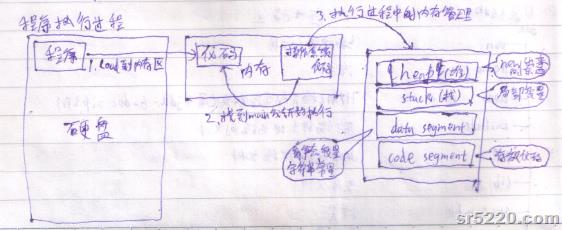 程序执行过程
3. 执行过程中的内存管理
程序
1. load到内存区
代码
操作系统
代码
内存
heap(堆)
new出来
的东西
stack(栈)
局部变量
2. 找到main方法开始执行
硬盘
data segment
静态变量
字符串常量
code segment
存放代码
sr5220.com